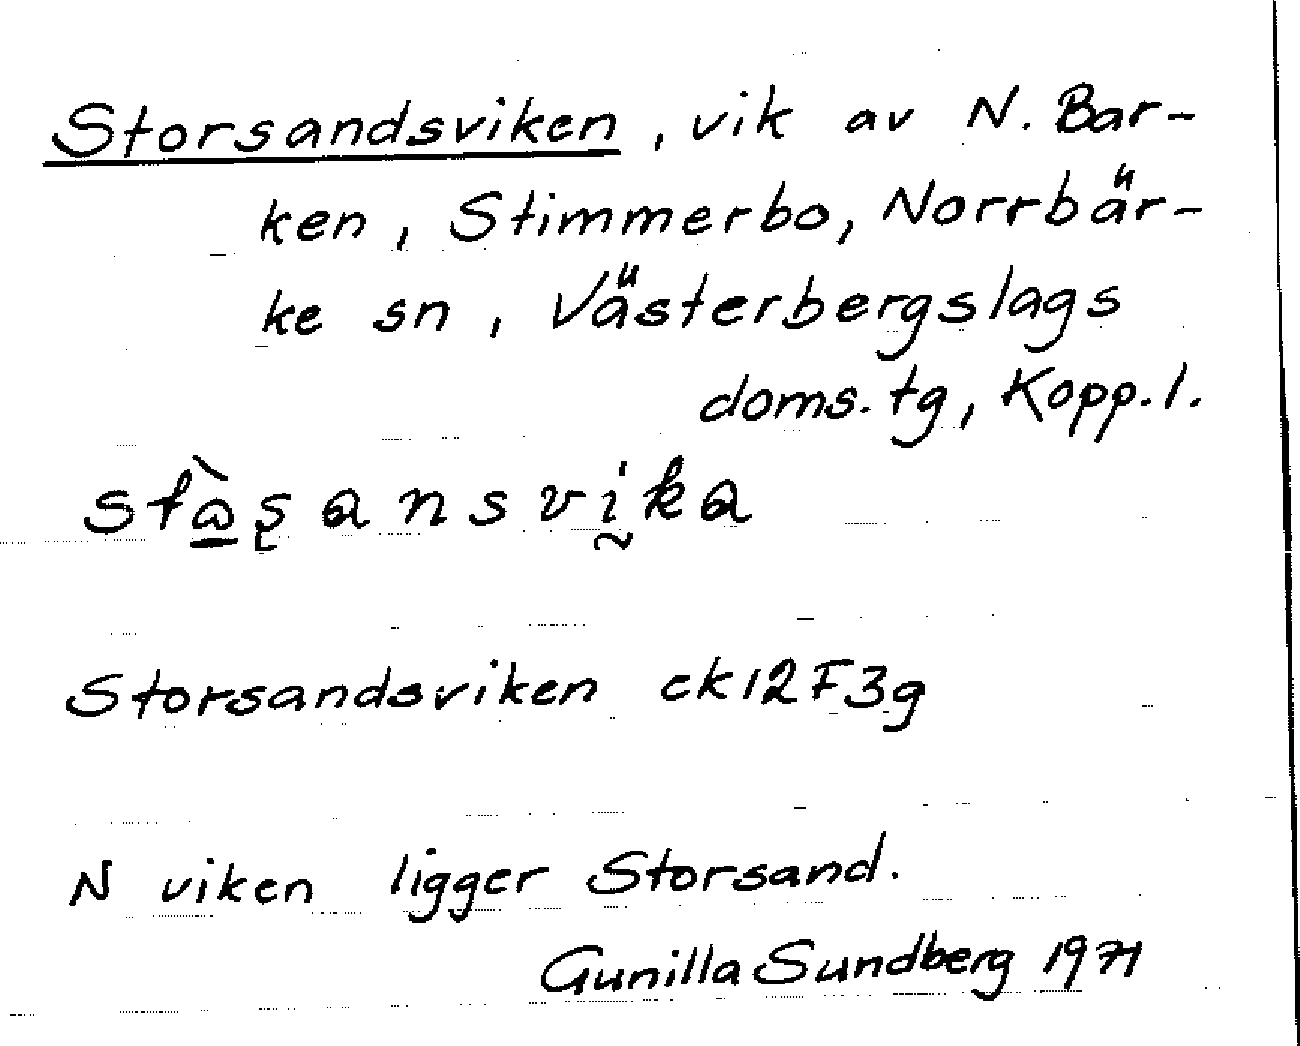 Storsandsviken, vik av N. Bar-
ken, Stimmerbo, Norrbär-
ke sn, Västerbergslags
doms. tg, Kopp. l.
Storsandsviken ck12F3g
N viken ligger Storsand.
Gunilla Sundberg 1971